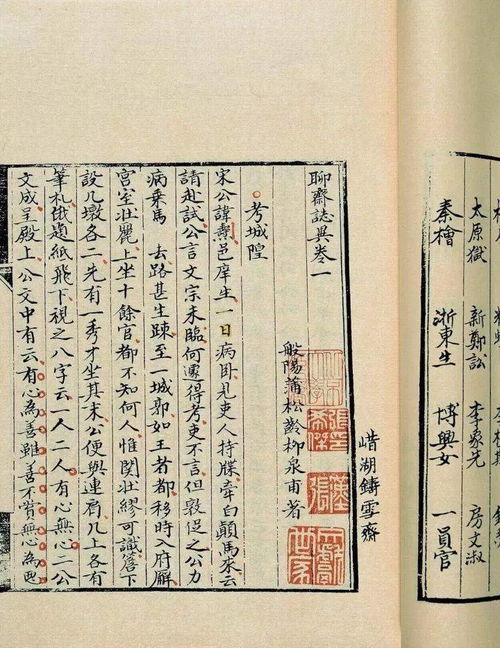 太原獄 新鄭訟 李象先 房文淑
秦檜 浙東生 博興女 一員官
湖鑄雪齋
聊齋誌異卷一
般陽蒲松齡柳泉甫著
考城隍
宋公諱燾邑庠生一日病卧見吏人持牒牽白顛馬來云
請赴試公言文宗未臨何遽得考吏不言但敦促之公力
病乘馬 去路甚生疎至一城郭如王者都移時入府廨
宮室壯麗上坐十餘官都不知何人惟関壯繆可識簷下
設几墩各二先有一秀才坐其末公便與連肩几上各有
筆札俄題紙飛下視之八字云一人二人有心無心二公
文成呈殿上公文中有云有心為善雖善不賞無心為惡